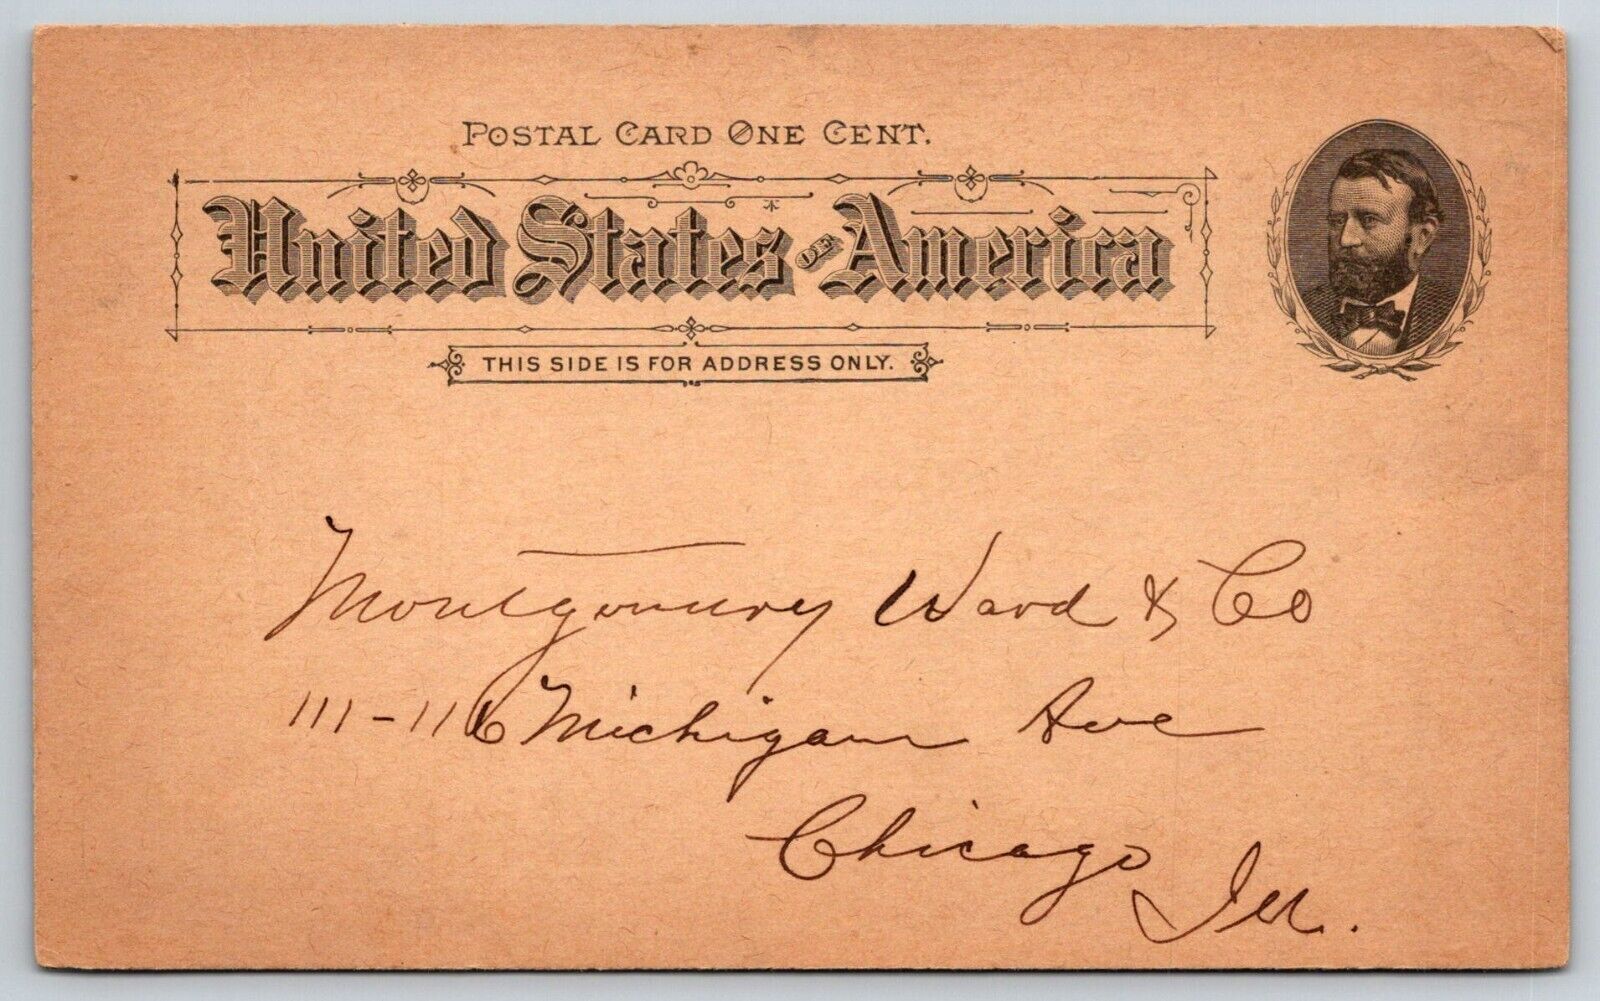 POSTAL CARD ONE CENT.
United States OF America
THIS SIDE IS FOR ADDRESS ONLY.
Montgomery Ward & Co
111-116 Michigan Ave
Chicago
Ill.